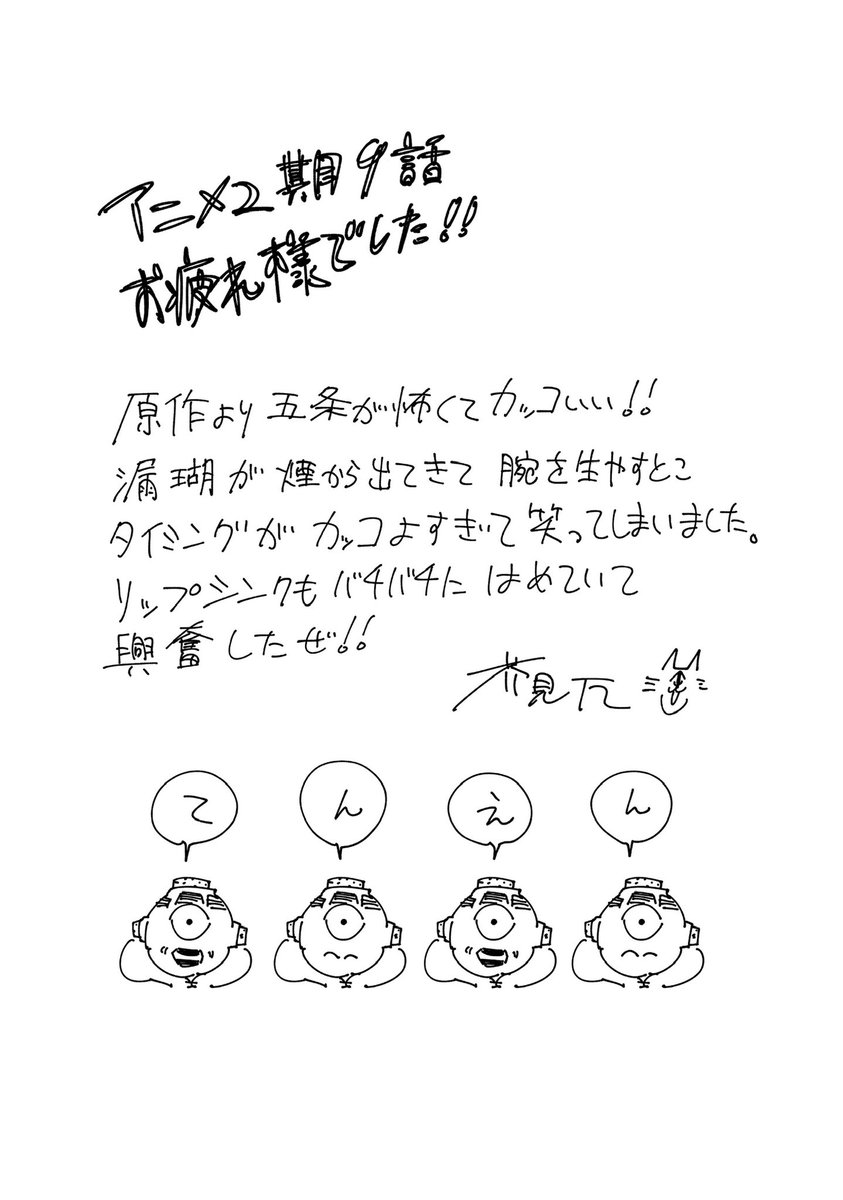 アニメ2期9話
お疲れ様でした!!
原作より五条が怖くてカッコいい!!
漏瑚が煙から出てきて腕を生やすとこ
タイミングがカッコよすぎて笑ってしまいました。
リップシンクもバチバチにはめていて
興奮したぜ!!
芥見下々
て
ん
え
ん